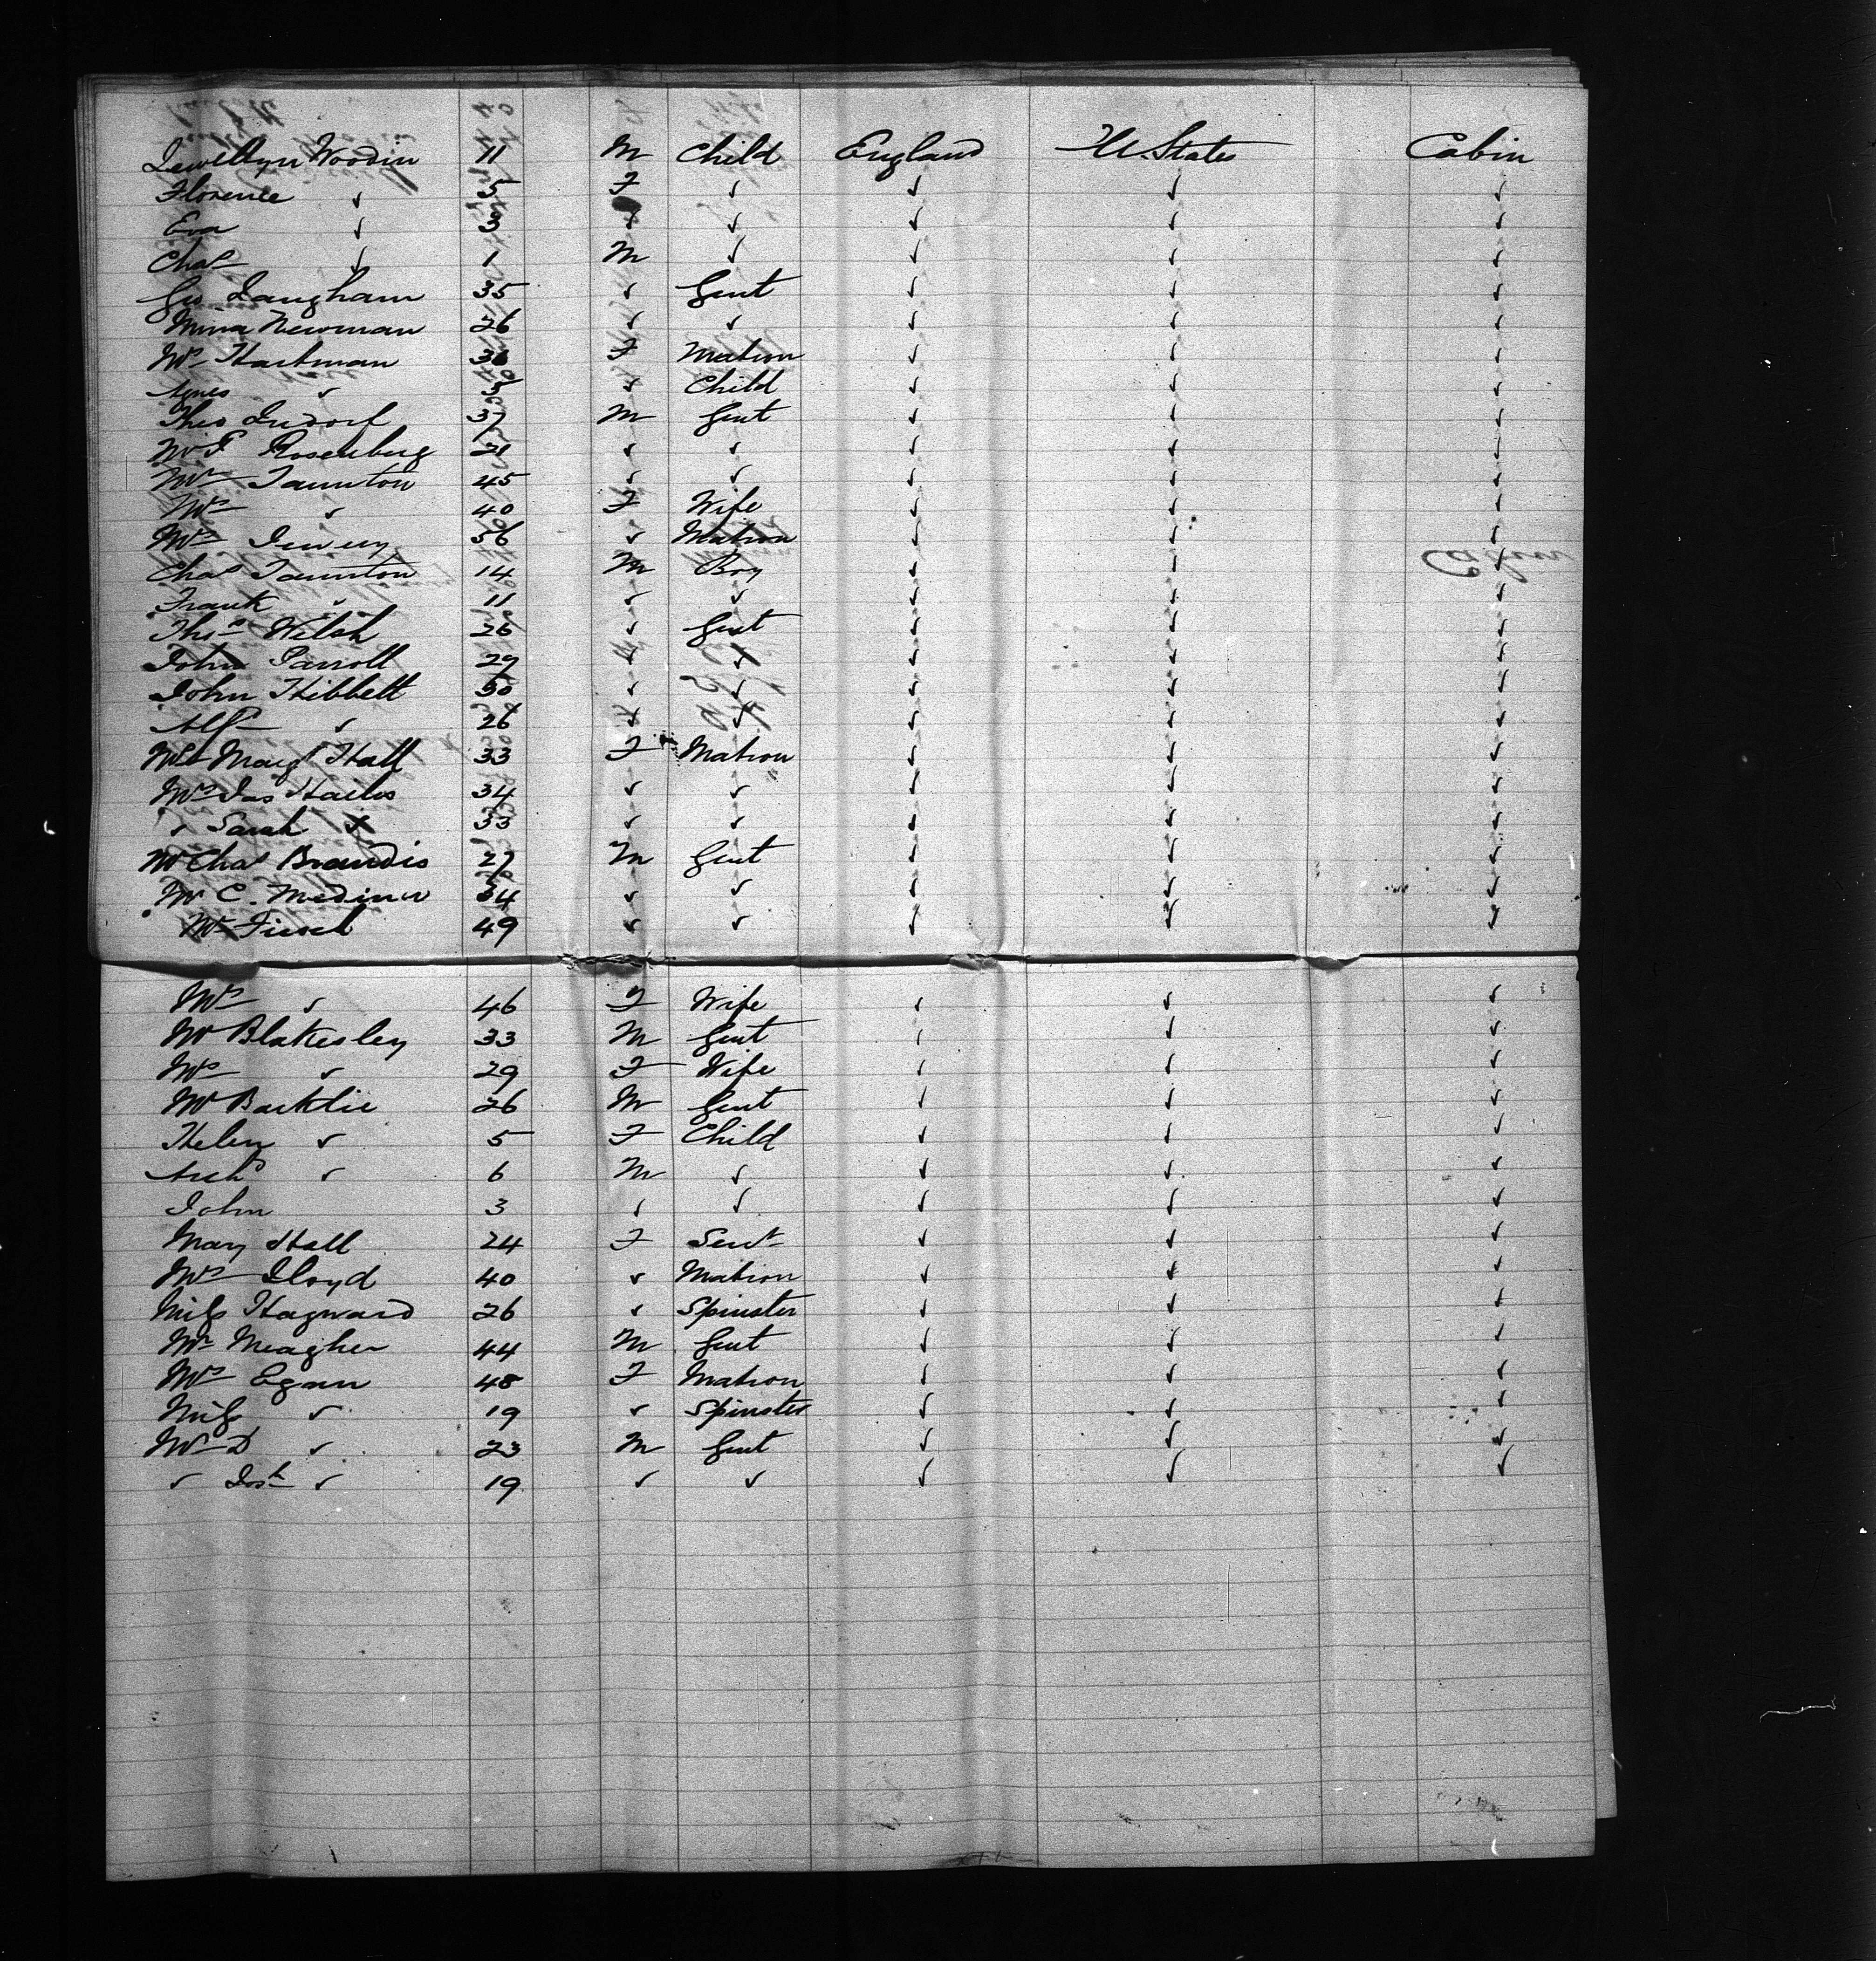 Lewellyn Woodin 11 M Child England U. States Cabin
Florence ✓ 5 F ✓ ✓ ✓ ✓
Eva ✓ 3 ✓ ✓ ✓ ✓ ✓
Chas ✓ 1 M ✓ ✓ ✓ ✓
Geo Langham 35 ✓ Gent ✓ ✓ ✓
Mina Newman 26 ✓ ✓ ✓ ✓ ✓
Mrs Hartman 36 F Matron ✓ ✓ ✓
Agnes ✓ 5 ✓ Child ✓ ✓ ✓
Theo 37 M Gent ✓ ✓ ✓
Mr P Rosenberg 21 ✓ ✓ ✓ ✓ ✓
Mr Taunton 45 ✓ ✓ ✓ ✓ ✓
Mrs ✓ 40 F Wife ✓ ✓ ✓
Mrs 56 ✓ Matron ✓ ✓ ✓
Chas Taunton 14 M Boy ✓ ✓ ✓
Frank ✓ 11 ✓ ✓ ✓ ✓ ✓
Thos Welsh 26 ✓ Gent ✓ ✓ ✓
John 27 ✓ ✓ ✓ ✓ ✓
John Hibbett 30 ✓ ✓ ✓ ✓ ✓
Alfd ✓ 26 ✓ ✓ ✓ ✓ ✓
Mrs Margt Hall 33 F Matron ✓ ✓ ✓
Mrs Jas 34 ✓ ✓ ✓ ✓ ✓
✓ Sarah ✓ 33 ✓ ✓ ✓ ✓ ✓
Mr Chas Brandis 27 M Gent ✓ ✓ ✓
Mr C. Medina 34 ✓ ✓ ✓ ✓ ✓
Mr 49 ✓ ✓ ✓ ✓ ✓
Mrs ✓ 46 F Wife ✓ ✓ ✓
Mr Blakesley 33 M Gent ✓ ✓ ✓
Mrs ✓ 29 F Wife ✓ ✓ ✓
Mr Barklie 26 M Gent ✓ ✓ ✓
Helen ✓ 5 F Child ✓ ✓ ✓
Archd ✓ 6 M ✓ ✓ ✓ ✓
John 3 ✓ ✓ ✓ ✓ ✓
Mary Hall 24 F Servt ✓ ✓ ✓
Mrs Lloyd 40 ✓ Matron ✓ ✓ ✓
Miss Hayward 26 ✓ Spinster ✓ ✓ ✓
Mr Meagher 44 M Gent ✓ ✓ ✓
Mrs Egan 48 F Matron ✓ ✓ ✓
Miss ✓ 19 ✓ Spinster ✓ ✓ ✓
Mr D ✓ 23 M Gent ✓ ✓ ✓
✓ Josh ✓ 19 ✓ ✓ ✓ ✓ ✓